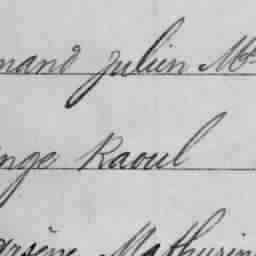 mand Julien M
nge Raoul
arsène Mathurin